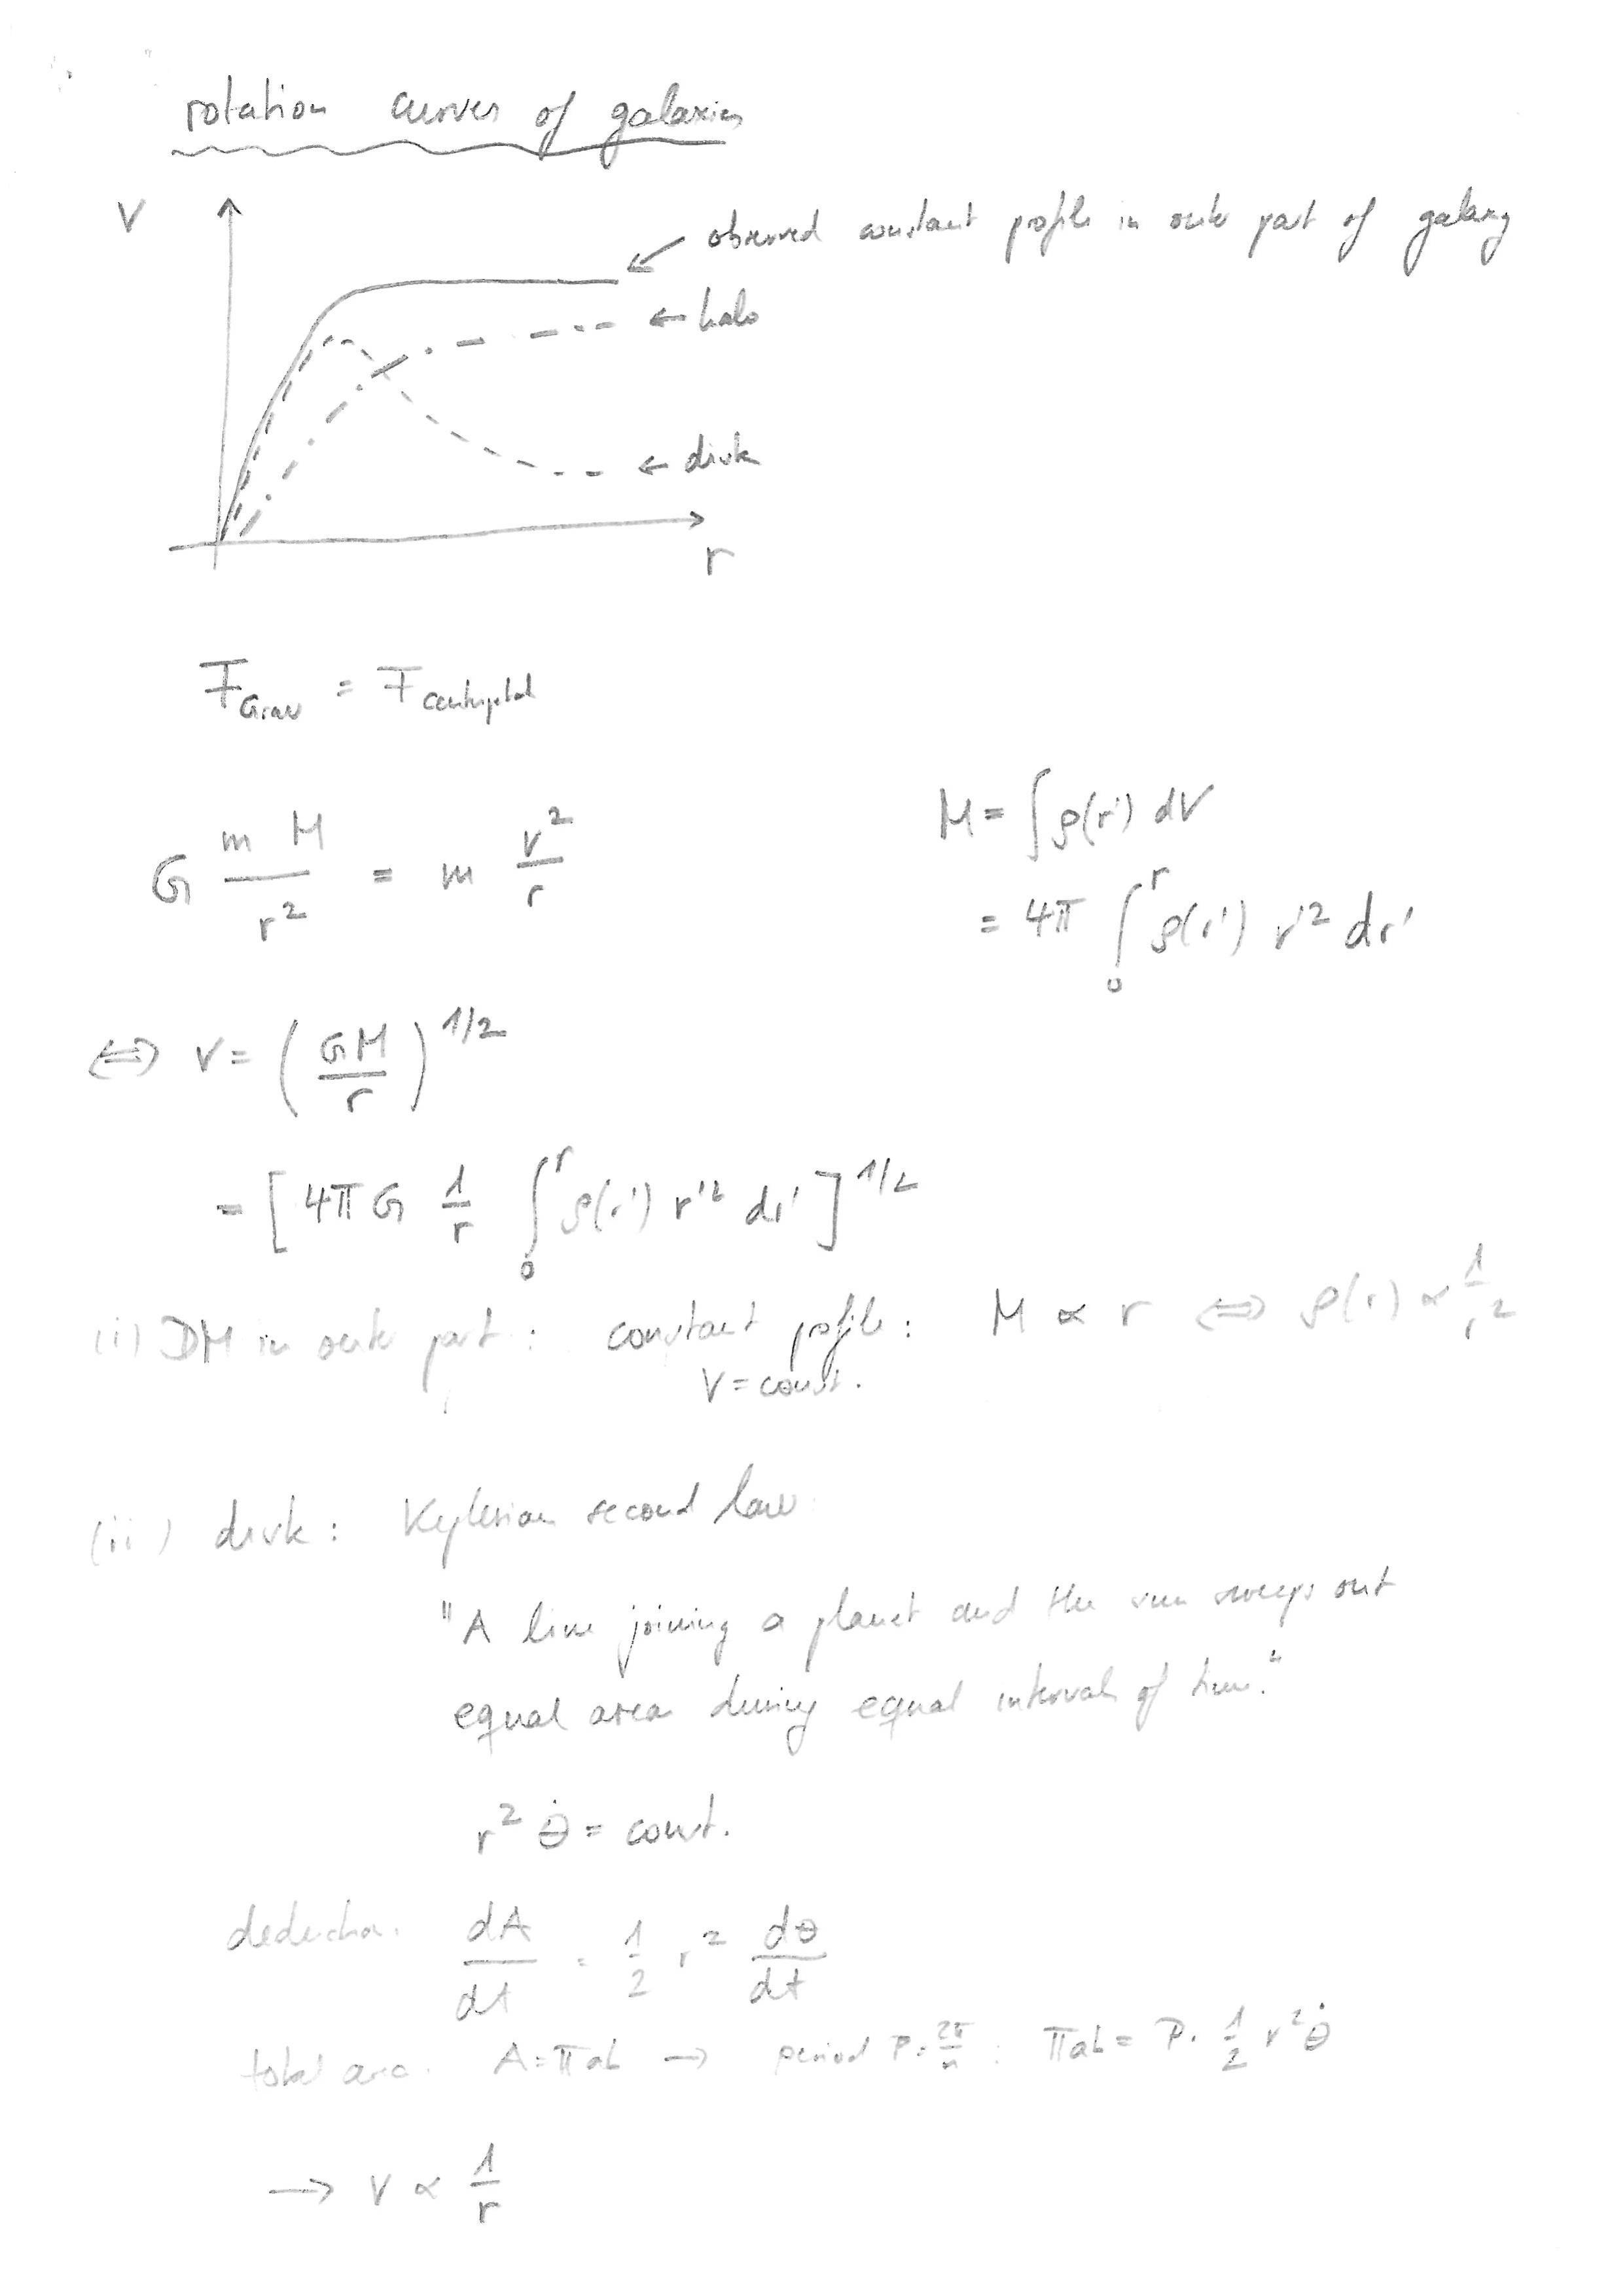 rotation curves of galaxies
V
observed constant profile in outer part of galaxy
halo
disk
r
F_Grav = F_centripetal
G m M / r² = m v² / r
M = ∫ ρ(r') dV
= 4π ∫₀^r ρ(r') r'² dr'
⇔ v = ( GM / r )^1/2
= [ 4π G 1/r ∫₀^r ρ(r') r'² dr' ]^1/2
(i) DM in outer part : constant profile : M ∝ r ⇔ ρ(r) ∝ 1/r²
V = const.
(ii) disk : Keplerian second law
"A line joining a planet and the sun sweeps out
equal area during equal intervals of time."
r² θ̇ = const.
deduction. dA/dt = 1/2 r² dθ/dt
total area. A = π ab → period P = 2π/n : π ab = P · 1/2 r² θ̇
→ v ∝ 1/r